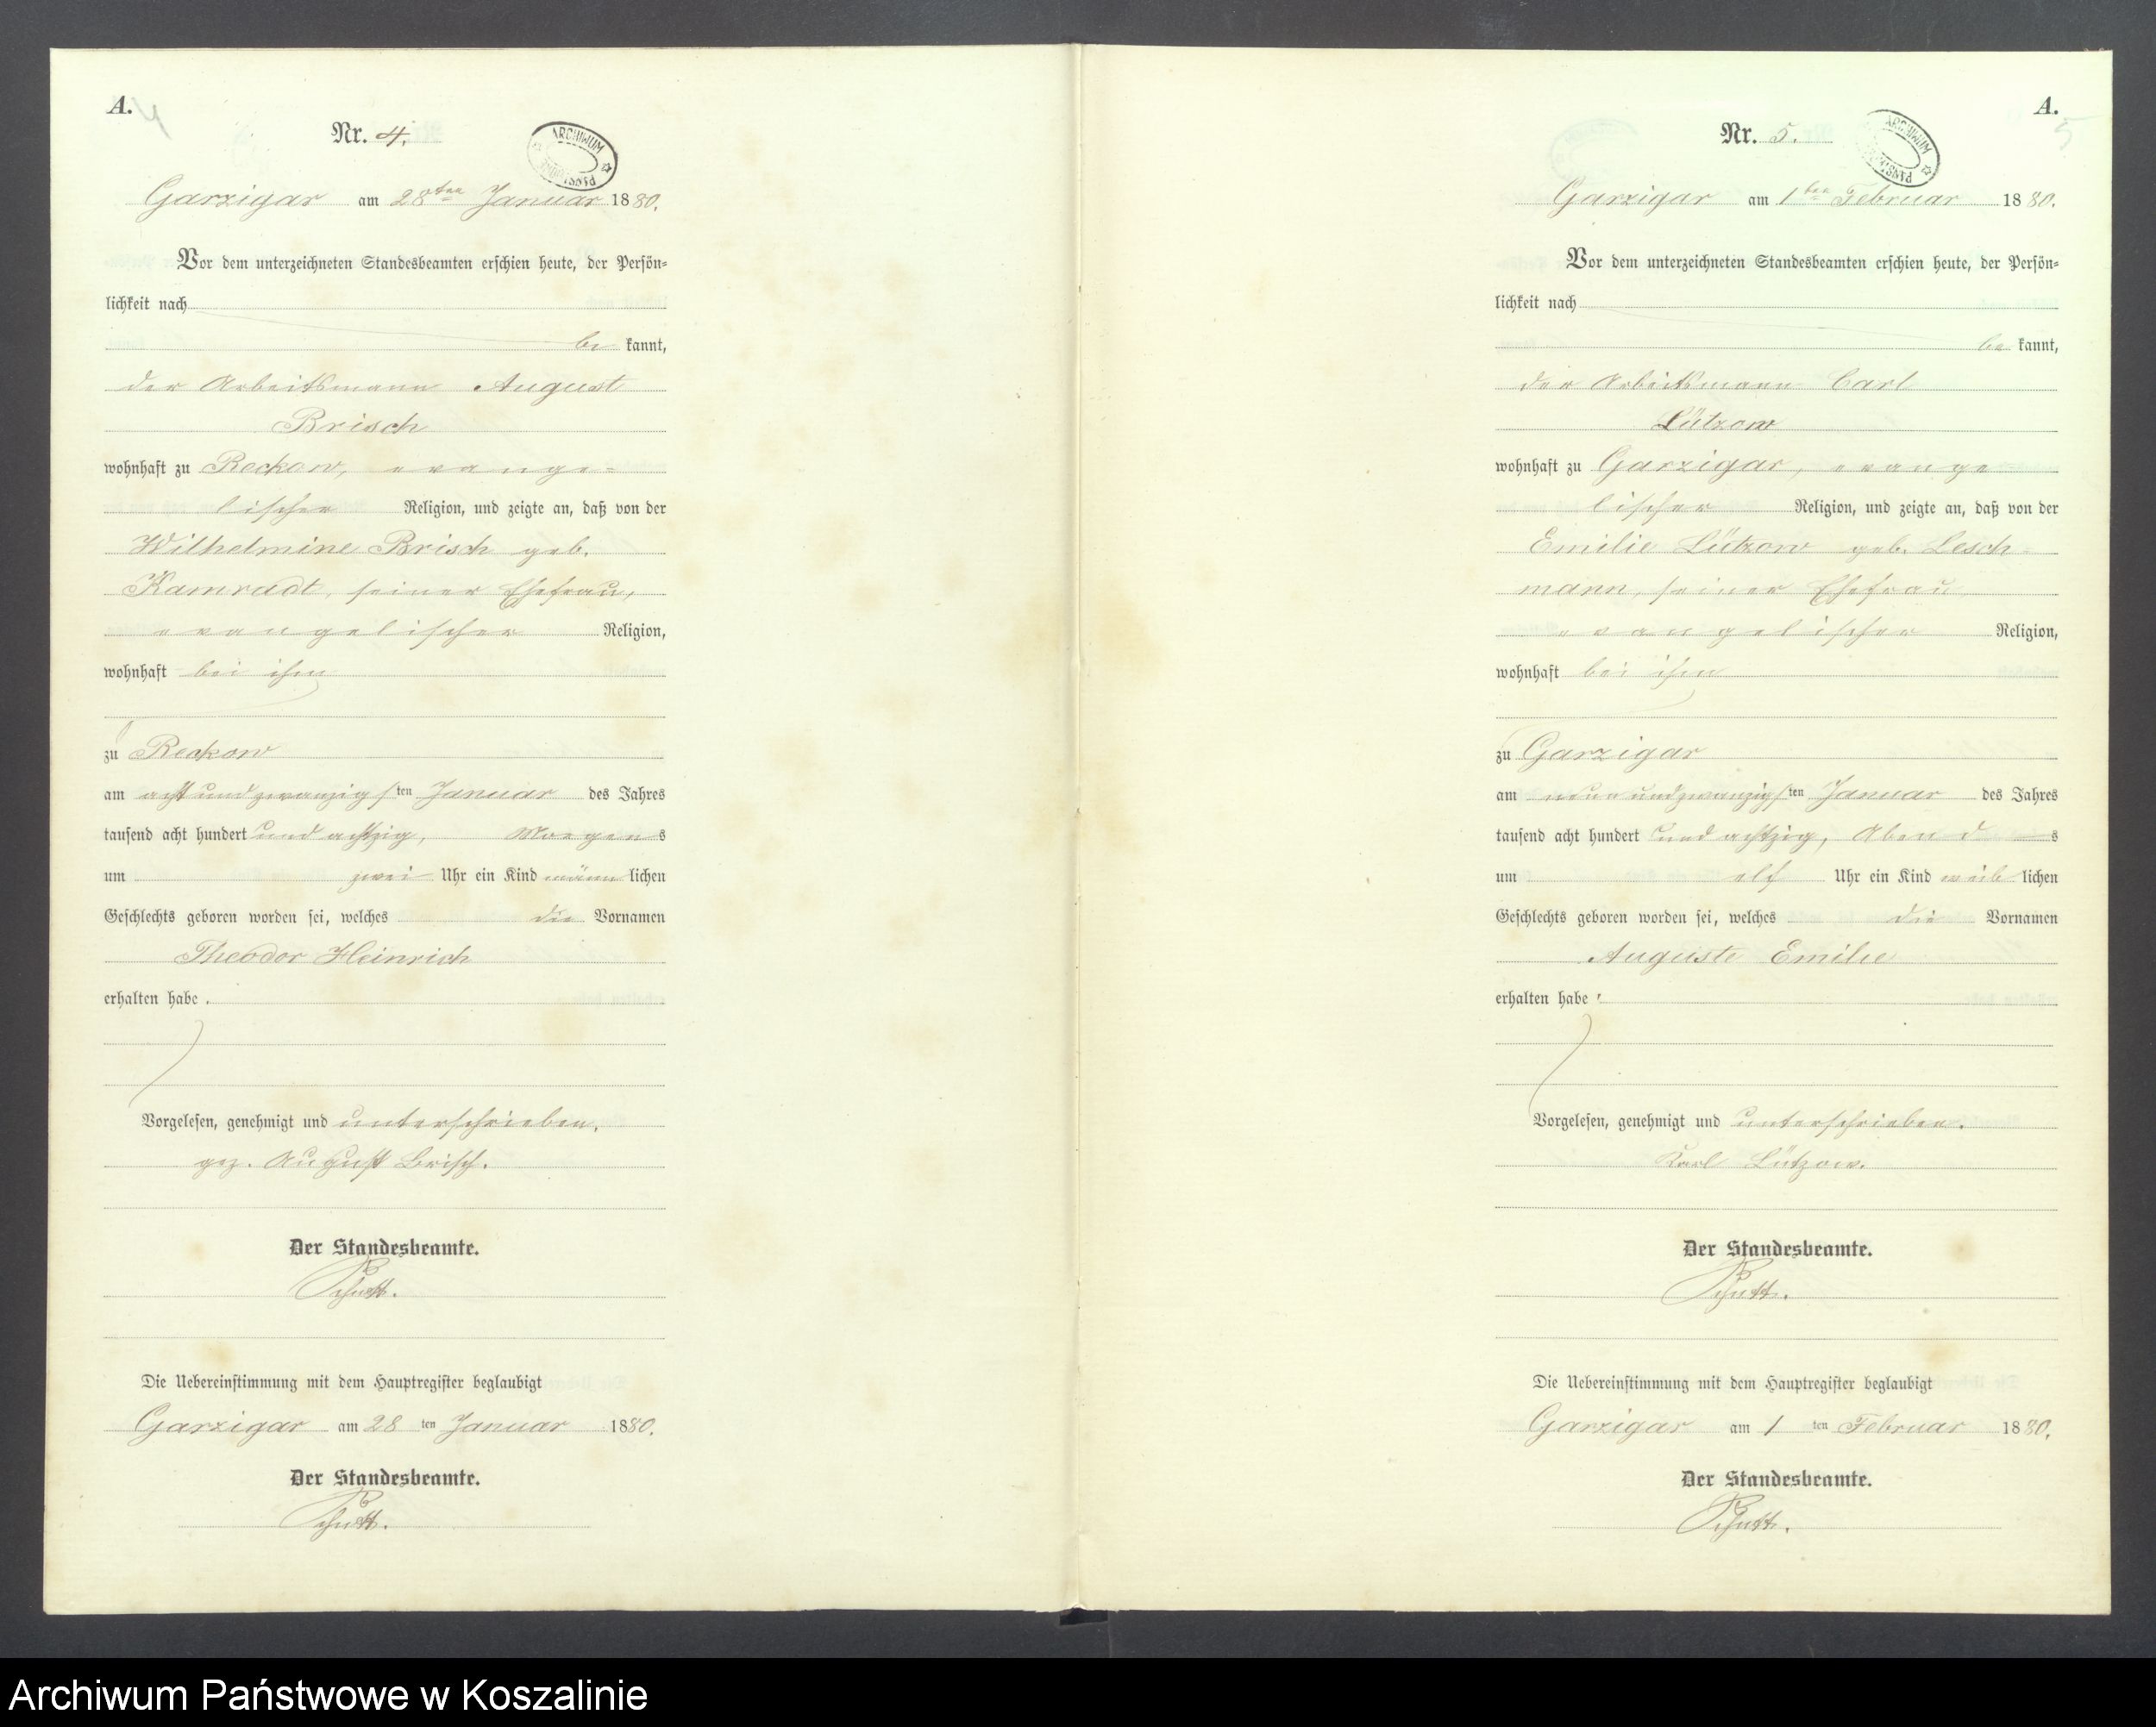 A.
4
Nr. 4.
ARCHIWUM PAŃSTWOWE
Garzigar am 28ten Januar 1880.
Vor dem unterzeichneten Standesbeamten erschien heute, der Persön-
lichkeit nach
be kannt,
der Arbeitsmann August
Brisch
wohnhaft zu Reckow, evange-
lischer Religion, und zeigte an, daß von der
Wilhelmine Brisch geb.
Kamradt, seiner Ehefrau,
evangelischer Religion,
wohnhaft bei ihm
zu Reckow
am acht und zwanzigsten Januar des Jahres
tausend acht hundert und achtzig, Morgens
um zwei Uhr ein Kind männlichen
Geschlechts geboren worden sei, welches die Vornamen
Theodor Heinrich
erhalten habe.
Vorgelesen, genehmigt und unterschrieben.
gez. August Brisch.
Der Standesbeamte.
Schutt.
Die Uebereinstimmung mit dem Hauptregister beglaubigt
Garzigar am 28 ten Januar 1880.
Der Standesbeamte.
Schutt.
A.
5
Nr. 5.
ARCHIWUM PAŃSTWOWE
Garzigar am 1ten Februar 1880.
Vor dem unterzeichneten Standesbeamten erschien heute, der Persön-
lichkeit nach
be kannt,
der Arbeitsmann Carl
Lützow
wohnhaft zu Garzigar, evange
lischer Religion, und zeigte an, daß von der
Emilie Lützow geb. Lesch-
mann, seiner Ehefrau
evangelischer Religion,
wohnhaft bei ihm
zu Garzigar
am neun und zwanzigsten Januar des Jahres
tausend acht hundert und achtzig, Abends
um elf Uhr ein Kind weiblichen
Geschlechts geboren worden sei, welches die Vornamen
Auguste Emilie
erhalten habe.
Vorgelesen, genehmigt und unterschrieben.
Karl Lützow.
Der Standesbeamte.
Schutt.
Die Uebereinstimmung mit dem Hauptregister beglaubigt
Garzigar am 1 ten Februar 1880.
Der Standesbeamte.
Schutt.
Archiwum Państwowe w Koszalinie